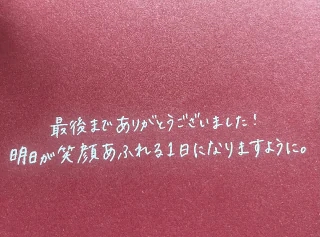 最後までありがとうございました！
明日が笑顔あふれる1日になりますように。